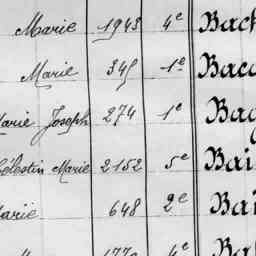 Marie 1943 4e Bac
Marie 345 1e Bac
Marie Joseph 274 1e Ba
Célestin Marie 2152 5e Bai
Marie 648 2e Bai